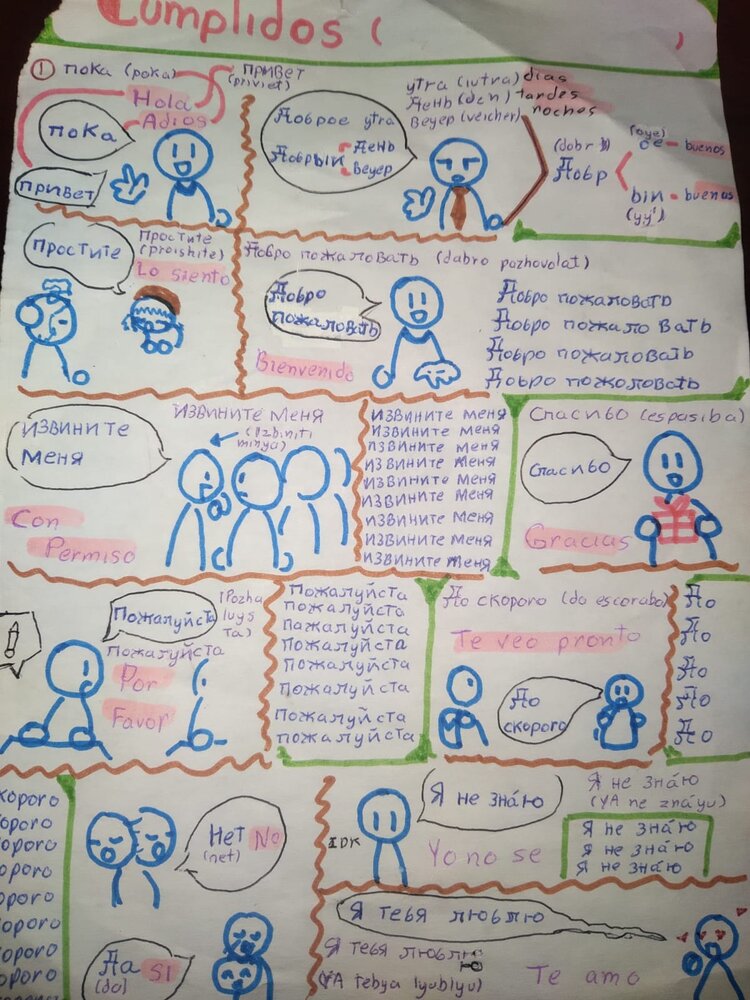 Cumplidos ( )
① пока (poka)
привет
(priviet)
Hola
Adios
пока
привет
Доброе утга
Добрый день
вечер
утга (iutra) dias
День (den) tardes
вечер (veicher) noches
(dobr)
Добр
(oye)
ое - buenos
ыи - buenas
(yy')
Простите
Простите
(proishite)
Lo siento
Добро пожаловать (dabro pozhovolat)
Добро
пожаловать
Bienvenido
Добро пожаловать
Добро пожаловать
Добро пожаловать
Добро пожоловать
извините
меня
извините меня
(Izbiniti
minya)
Con
Permiso
извините меня
извините меня
извините меня
извините меня
извините меня
извините меня
извините меня
извините меня
извините меня
Спасибо (espasiba)
Спасибо
Gracias
!
Пожалуйста
(Pozha
luys
ta)
пожалуйста
Por
Favor
Пожалуйста
пожалуйста
Пажалуйста
Пожалуйста
Пожалуйста
Пожалуйста
Пожалуйста
пожалуйста
До скорого (do escorabo)
Te veo pronto
До
скорого
До
До
До
До
До
короro
короro
ороro
ороro
ороro
ороro
ороro
Нет No
(net)
Да SI
(da)
IDK
Я не знáю
Я не знáю
(YA ne znáyu)
Yo no se
Я не знáю
Я не знáю
Я не знáю
Я тебя люблю
Я тебя люблю
(YA tebya lyublyu)
Te amo